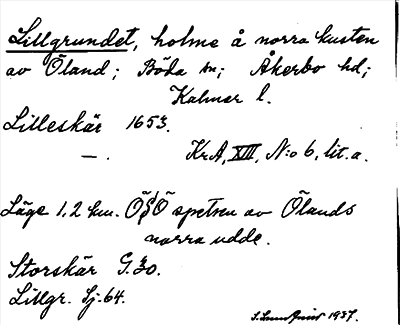 Lillgrundet, holme å norra kusten
av Öland; Böda sn; Åkerbo hd;
Kalmar l.
Lilleskär 1653.
—. KrA, XIII, N:o 6, lit. a.
Läge 1,2 km. ÖSÖ spetsen av Ölands
norra udde.
Storskär G.30.
Lillgr. Sj.64.
1937.